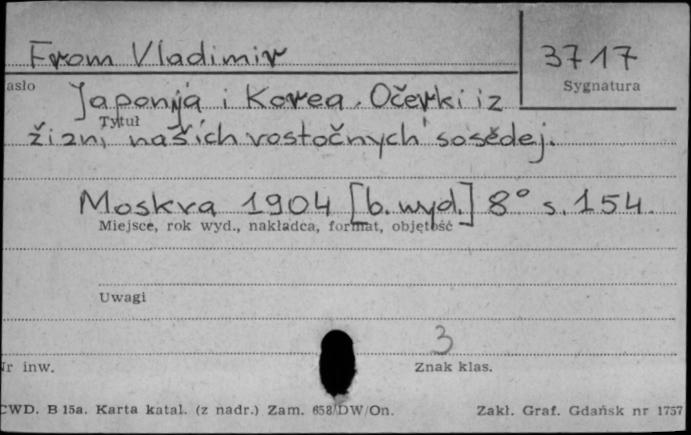 From Vladimir
3717
asło
Sygnatura
Japonija i Korea. Očerki iz
Tytuł
žizni našich vostočnych sosědej.
Moskva 1904 [b. wyd.] 8° s. 154.
Miejsce, rok wyd., nakładca, format, objętość
Uwagi
3
Nr inw.
Znak klas.
CWD. B 15a. Karta katal. (z nadr.) Zam. 658/DW/On.
Zakł. Graf. Gdańsk nr 1757